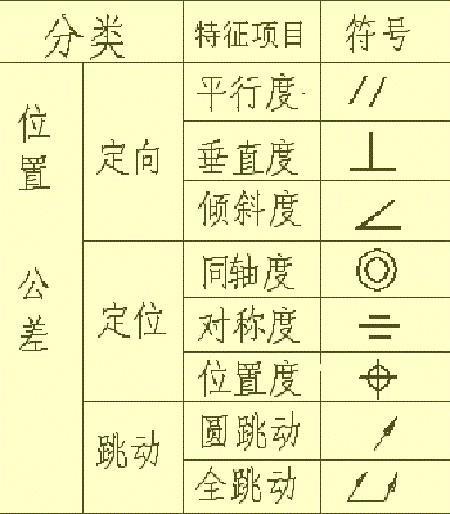 分类 特征项目 符号
位置公差 定向 平行度 //
垂直度 ⊥
倾斜度 ∠
定位 同轴度 ◎
对称度 ⌯
位置度 ⌖
跳动 圆跳动 ↗
全跳动 ⌰